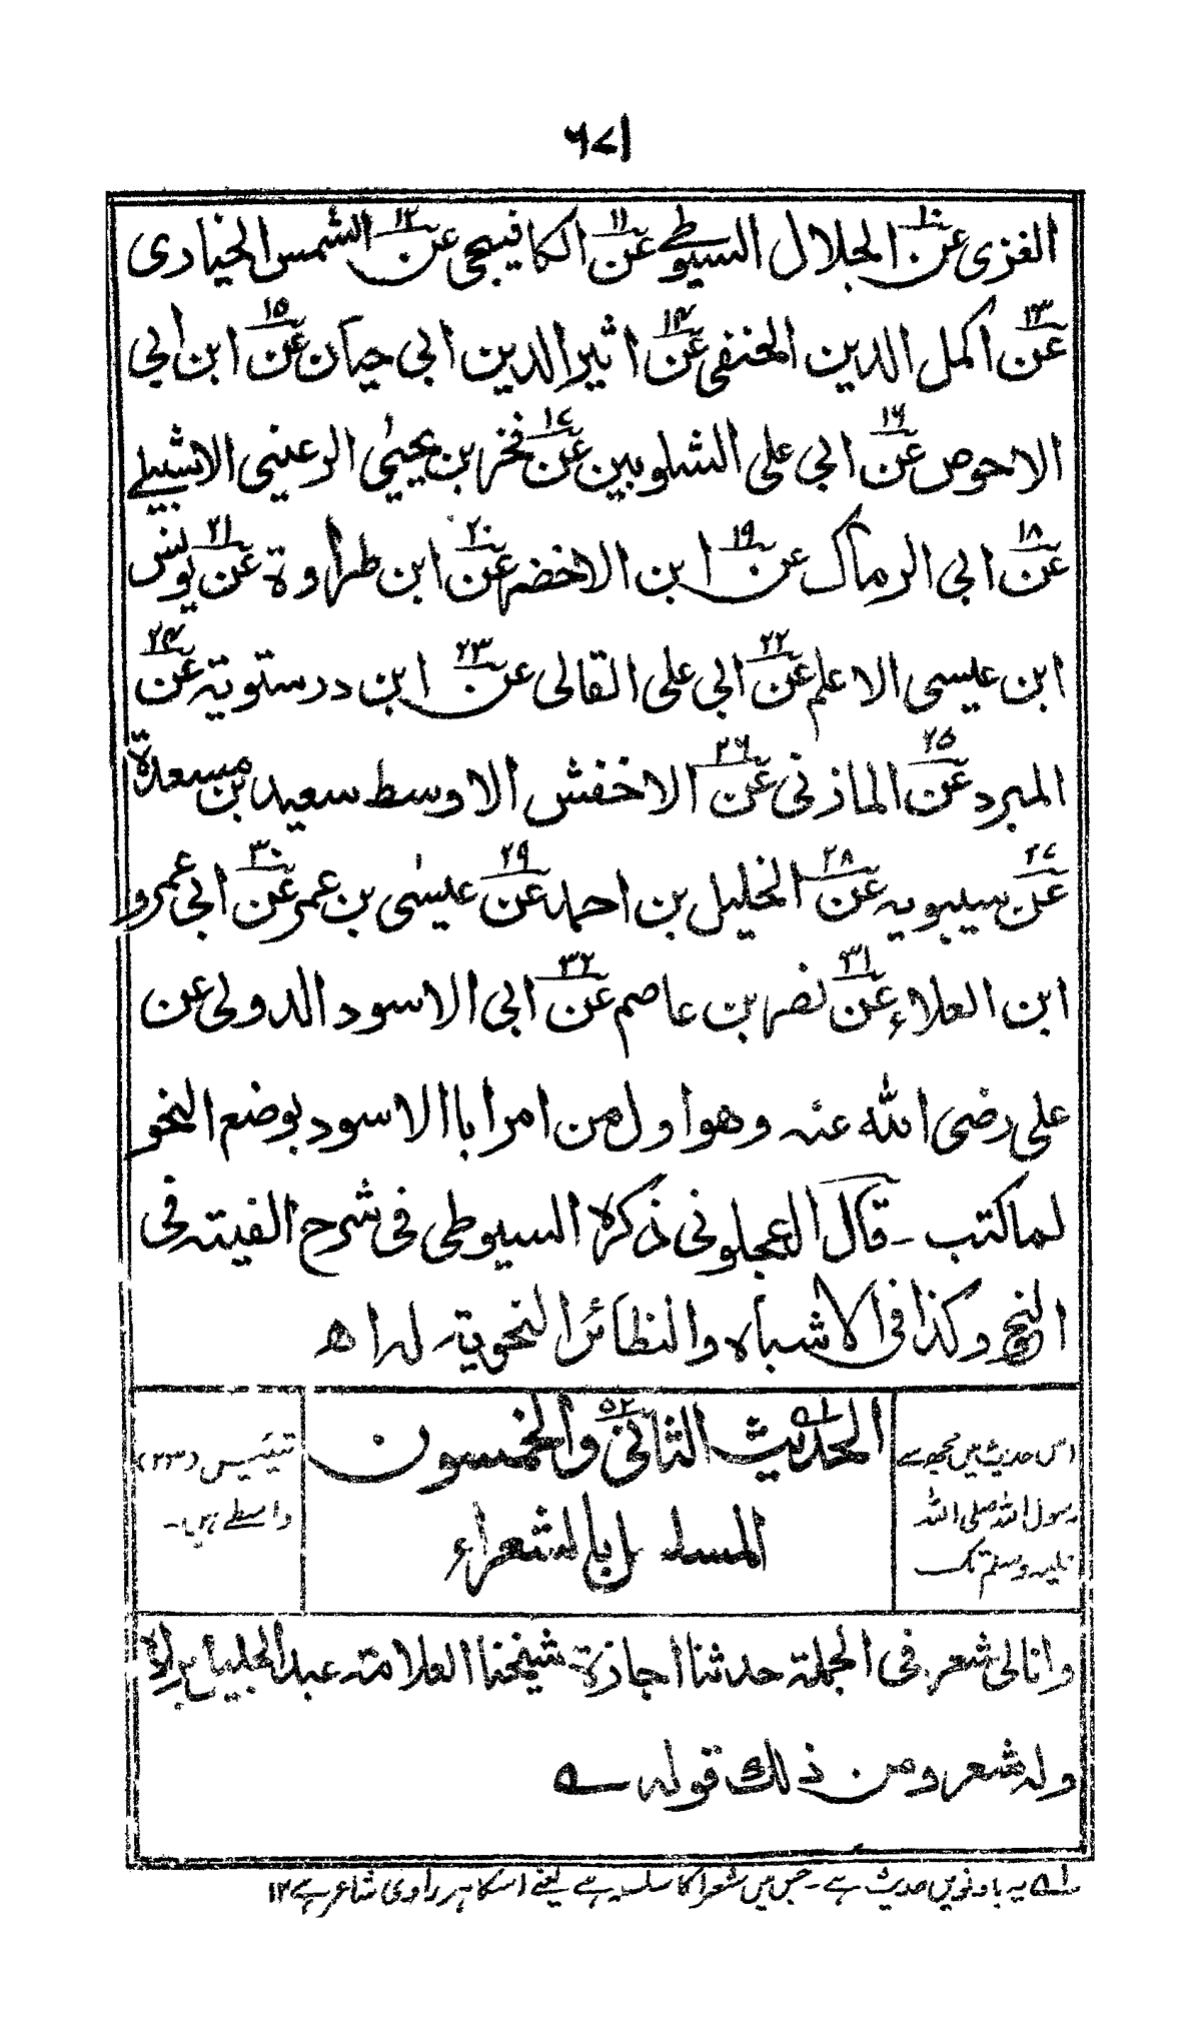 ۶۷۱
الغزی عن۱۰ الجلال السیوطی عن۱۱ الکافیجی عن۱۲ الشمس الخیادی
عن۱۳ اکمل الدین الحنفی عن۱۴ اثیر الدین ابی حیان عن۱۵ ابن ابی
الاحوص عن۱۶ ابی علی الشلوبین عن۱۷ فخر بن یحییٰ الرعینی الاشبیلے
عن۱۸ ابی الرماک عن۱۹ ابن الاخضر عن۲۰ ابن طراوۃ عن۲۱ یونس
ابن عیسی الاعلم عن۲۲ ابی علی القالی عن۲۳ ابن درستویۃ عن۲۴
المبرد عن۲۵ المازنی عن۲۶ الاخفش الاوسط سعید بن مسعدۃ
عن۲۷ سیبویہ عن۲۸ الخلیل بن احمد عن۲۹ عیسٰی بن عمر عن۳۰ ابی عمرو
ابن العلاء عن۳۱ نصر بن عاصم عن۳۲ ابی الاسود الدولی عن
علی رضی اللہ عنہ وھو اول من امر ابا الاسود بوضع النحو
لما کتب ۔ قال العجلونی ذکرہ السیوطی فی شرح الفیتہ فی
النحو وکذا فی الاشباہ والنظائر النحویۃ لہ اھ
اس حدیث میں مجھ سے
رسول اللہ صلی اللہ
علیہ وسلم تک
الحدیث۱ الثانی۵۲ والخمسون
المسلسل بالشعراء
تیئیس (۲۳)
واسطے ہیں۔
وانا لی شعر فی الجملۃ حدثنا اجازۃ شیخنا العلامۃ عبد الجلیل براد
ولہ شعر ومن ذلک قولہ ؎
لہ یہ باونویں حدیث ہے۔ جس میں شعرا کا سلسلہ ہے یعنے اسکا ہر راوی شاعر ہے ۱۲